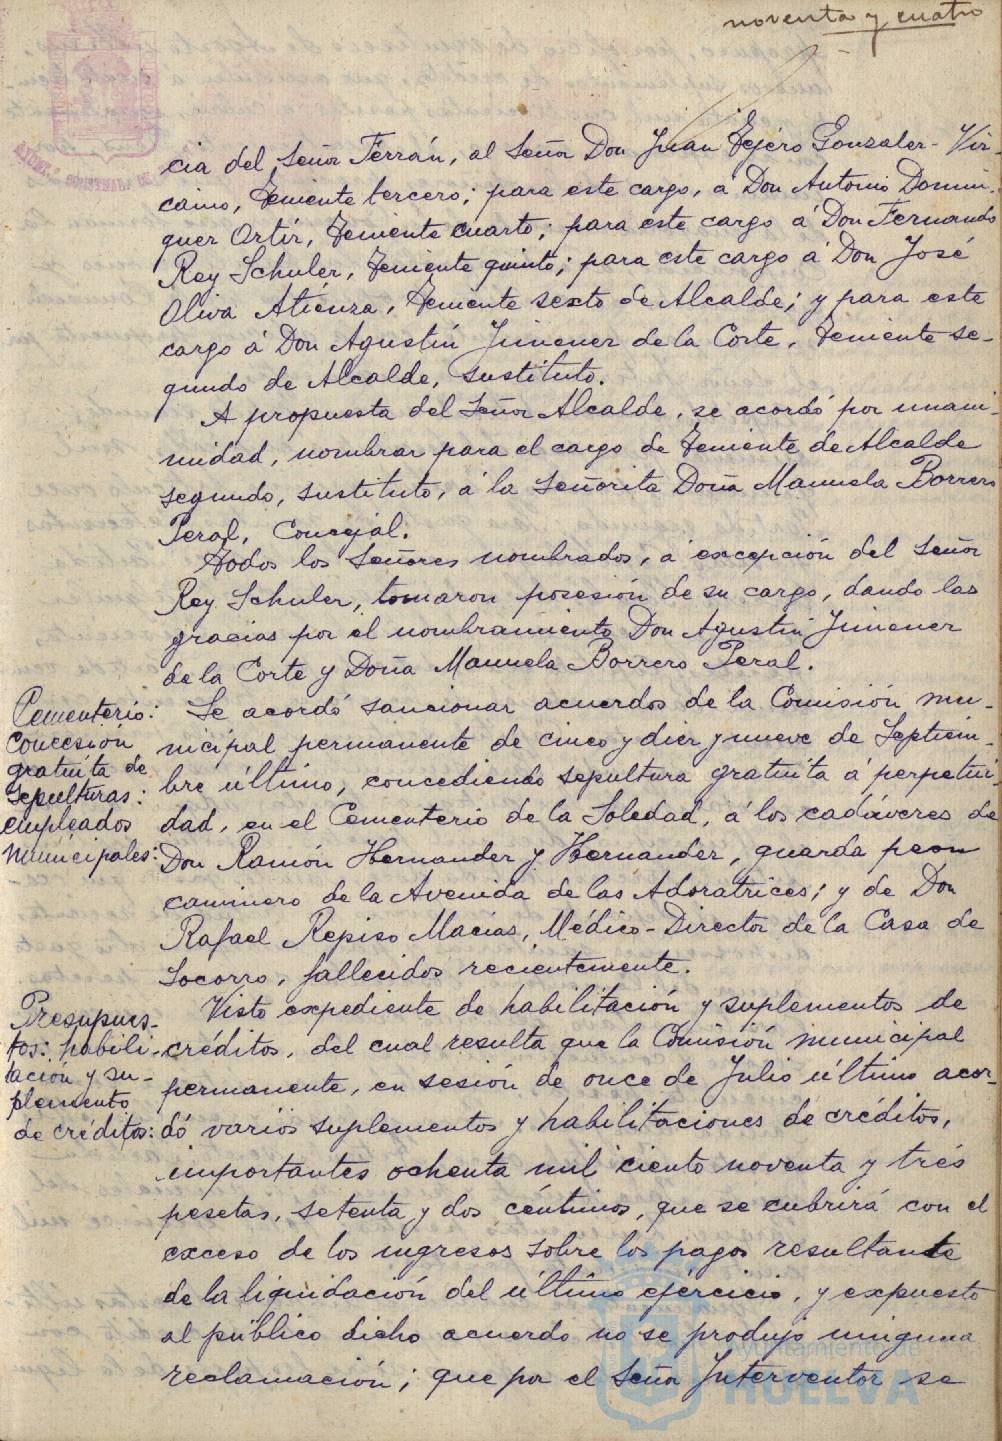 noventa y cuatro
cia del Señor Ferrán, al Señor Don Juan Tejéro Gonzalez-Viz-
caino, Teniente tercero; para este cargo, á Don Antonio Domin-
guez Ortiz, Teniente cuarto; para este cargo á Don Fernando
Rey Schuler, Teniente quinto; para este cargo á Don José
Oliva Atiénza, Teniente sexto de Alcalde; y para este
cargo á Don Agustín Jimenez de la Corte, Teniente se-
gundo de Alcalde, sustituto.
A propuesta del Señor Alcalde, se acordó por unani-
midad, nombrar para el cargo de Teniente de Alcalde
segundo, sustituto, á la Señorita Doña Manuela Borrero
Peral, Concejal.
Todos los Señores nombrados, á excepción del Señor
Rey Schuler, tomaron posesión de su cargo, dando las
gracias por el nombramiento Don Agustín Jimenez
de la Corte y Doña Manuela Borrero Peral.
Cementerio:
Concesión
gratuita de
sepulturas:
empleados
municipales:
Se acordó sancionar acuerdos de la Comisión mu-
nicipal permanente de cinco y diez y nueve de Septiem-
bre último, concediendo sepultura gratuita á perpetui-
dad, en el Cementerio de la Soledad, á los cadáveres de
Don Ramón Hernandez y Hernandez, guarda peon
caminero de la Avenida de las Adoratrices; y de Don
Rafael Repiso Macías, Médico-Director de la Casa de
Socorro, fallecidos recientemente.
Presupues-
tos: habili-
tación y su-
plemento
de créditos:
Visto expediente de habilitación y suplementos de
créditos, del cual resulta que la Comisión municipal
permanente, en sesión de once de Julio último acor-
dó varios suplementos y habilitaciones de créditos,
importantes ochenta mil ciento noventa y tres
pesetas, setenta y dos céntimos, que se cubrirá con el
exceso de los ingresos sobre los pagos resultante
de la liquidación del último ejercicio, y expuesto
al público dicho acuerdo no se produjo ninguna
reclamación; que por el Señor Interventor se
Ayuntamiento de
HUELVA